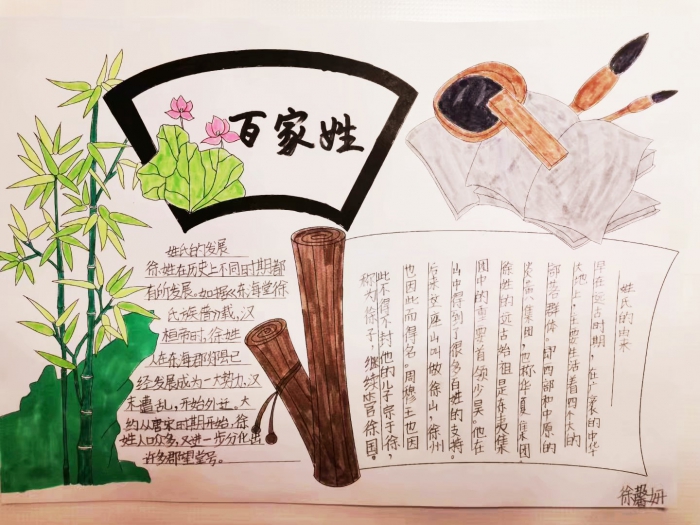 百家姓
姓氏的发展
徐姓在历史上不同时期都
有所发展。如据《东海堂徐
氏族谱》载,汉
桓帝时,徐姓
人在东海郡郯邑已
经发展成为一大势力,汉
末遭乱,开始外迁。大
约从唐宋时期开始,徐
姓人口众多,又进一步分化出
许多郡望堂号。
姓氏的由来
早在远古时期,在广袤的中华
大地上,主要生活着四个大的
部落群体。即西部和中原的
炎黄集团,也称华夏集团
徐姓的远古始祖是东夷集
团中的重要首领少昊。他在
山中得到了很多百姓的支持。
后来这座山叫做徐山,徐州
也因此而得名。周穆王也因
此不得不封他的儿子宗于徐,
称为徐子,继续管徐国。
徐馨妍